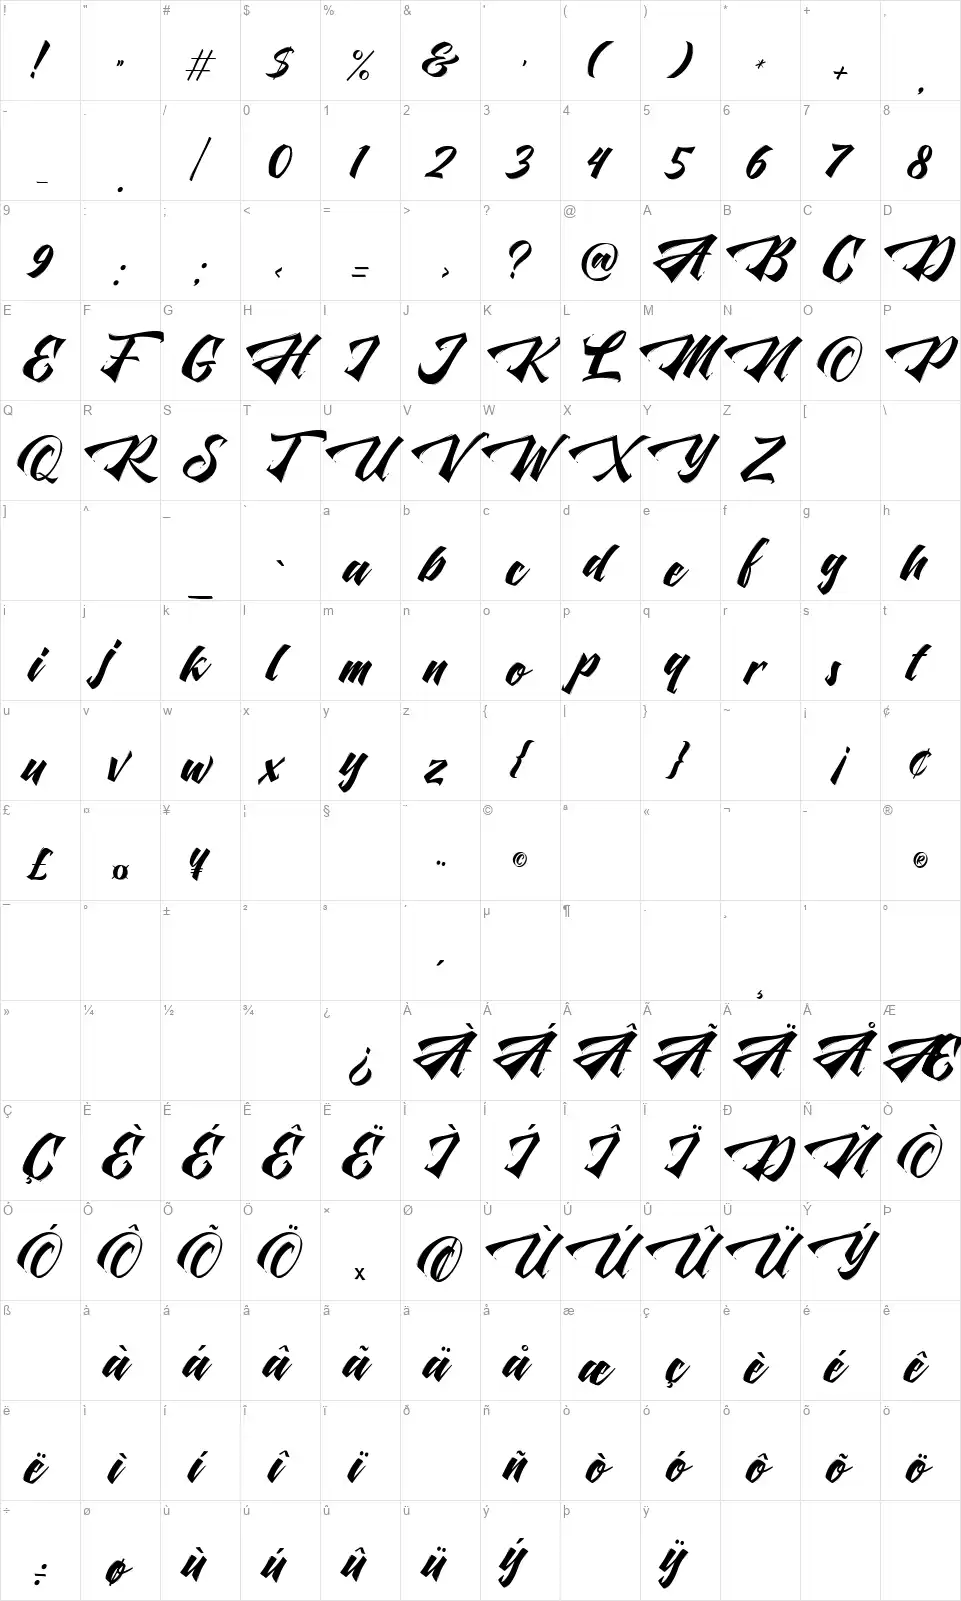 ! " # $ % & ' ( ) * + ,
! " # $ % & ' ( ) * + ,
- . / 0 1 2 3 4 5 6 7 8
- . / 0 1 2 3 4 5 6 7 8
9 : ; < = > ? @ A B C D
9 : ; < = > ? @ A B C D
E F G H I J K L M N O P
E F G H I J K L M N O P
Q R S T U V W X Y Z [ \
Q R S T U V W X Y Z
] ^ _ ` a b c d e f g h
_ ` a b c d e f g h
i j k l m n o p q r s t
i j k l m n o p q r s t
u v w x y z { | } ~ ¡ ¢
u v w x y z { } ¡ ¢
£ ¤ ¥ ¦ § ¨ © ª « ¬ - ®
£ ¤ ¥ ¨ © ®
¯ ° ± ² ³ ´ µ ¶ · ¸ ¹ º
´ ¸
» ¼ ½ ¾ ¿ À Á Â Ã Ä Å Æ
¿ À Á Â Ã Ä Å Æ
Ç È É Ê Ë Ì Í Î Ï Ð Ñ Ò
Ç È É Ê Ë Ì Í Î Ï Ð Ñ Ò
Ó Ô Õ Ö × Ø Ù Ú Û Ü Ý Þ
Ó Ô Õ Ö × Ø Ù Ú Û Ü Ý
ß à á â ã ä å æ ç è é ê
à á â ã ä å æ ç è é ê
ë ì í î ï ð ñ ò ó ô õ ö
ë ì í î ï ñ ò ó ô õ ö
÷ ø ù ú û ü ý þ ÿ
÷ ø ù ú û ü ý ÿ